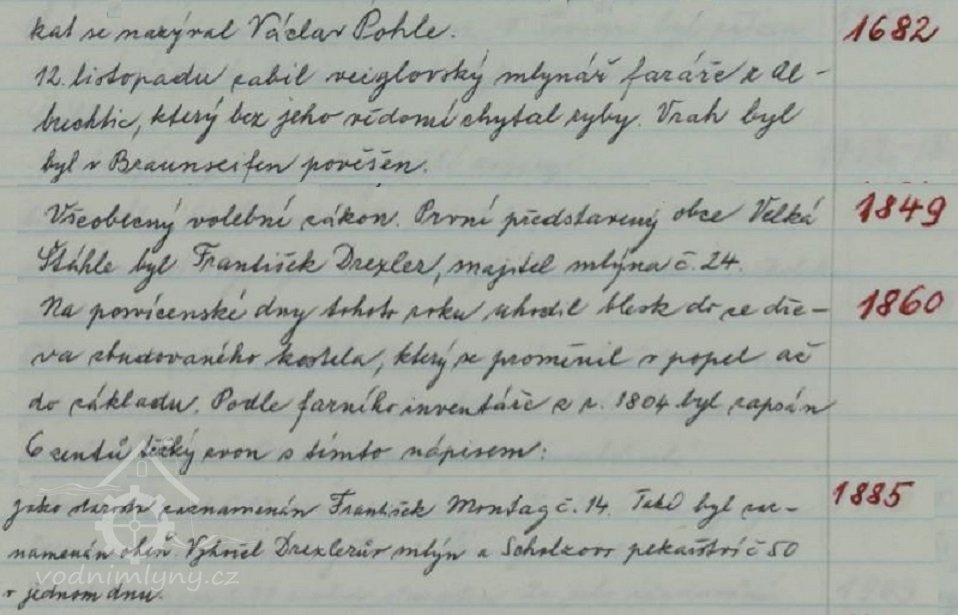 kat se nazýval Václav Pohle. 1682
12. listopadu zabil veiglovský mlynář faráře z Al-
brechtic, který bez jeho vědomí chytal ryby. Vrah byl
byl v Braunseifen pověšen.
Všeobecný volební zákon. První představený obce Velká 1849
Štáhle byl František Drexler, majitel mlýna č. 24.
Na posvícenské dny tohoto roku uhodil blesk do ze dře- 1860
va zbudovaného kostela, který se proměnil v popel až
do základu. Podle farního inventáře z r. 1804 byl zapsán
6 centů těžký zvon s tímto nápisem:
jako starosta zaznamenán František Montag č. 14. Také byl zaz- 1885
namenán oheň. Vyhořel Drexlerův mlýn a Scholzovo pekařství č 50
v jednom dnu.
vodnimlyny.cz